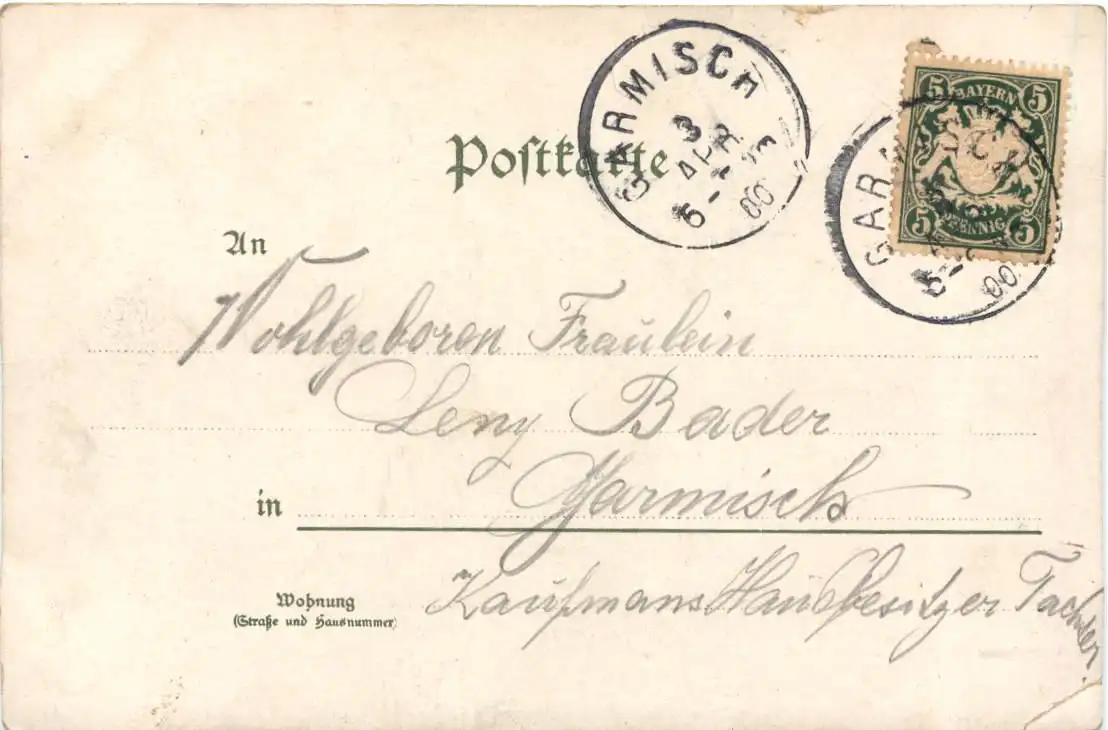 GARMISCH
3
APR
6-7
00
5 BAYERN 5
5 PFENNIG 5
GARMISCH
00
Postkarte
An
Wohlgeboren Fräulein
Leny Bader
in Garmisch
Wohnung
(Straße und Hausnummer)
Kaufmans Hausbesitzer Tochter